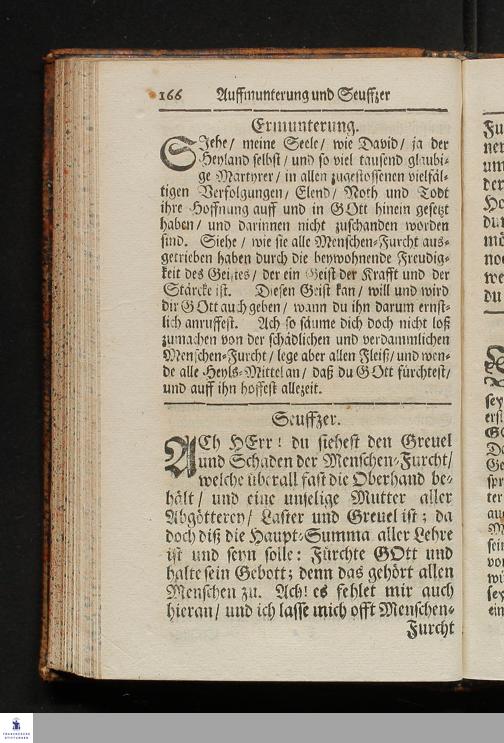 166 Auffmunterung und Seuffzer
Ermunterung.
SJehe/ meine Seele/ wie David/ ja der
Heyland selbst/ und so viel tausend glaubi-
ge Martyrer/ in allen zugestossenen vielfäl-
tigen Verfolgungen/ Elend/ Noth und Todt
ihre Hoffnung auff und in GOtt hinein gesetzt
haben/ und darinnen nicht zuschanden worden
sind. Siehe/ wie sie alle Menschen-Furcht aus-
getrieben haben durch die beywohnende Freudig-
keit des Geistes/ der ein Geist der Krafft und der
Stärcke ist. Diesen Geist kan/ will und wird
dir GOtt auch geben/ wann du ihn darum ernst-
lich anruffest. Ach so säume dich doch nicht loß
zumachen von der schädlichen und verdammlichen
Menschen-Furcht/ lege aber allen Fleiß/ und wen-
de alle Heyls-Mittel an/ daß du GOtt fürchtest/
und auff ihn hoffest allezeit.
Seuffzer.
ACh HErr! du siehest den Greuel
und Schaden der Menschen-Furcht/
welche überall fast die Oberhand be-
hält/ und eine unselige Mutter aller
Abgötterey/ Laster und Greuel ist; da
doch diß die Haupt-Summa aller Lehre
ist und seyn solle: Fürchte GOtt und
halte sein Gebott; denn das gehört allen
Menschen zu. Ach! es fehlet mir auch
hieran/ und ich lasse mich offt Menschen-
Furcht